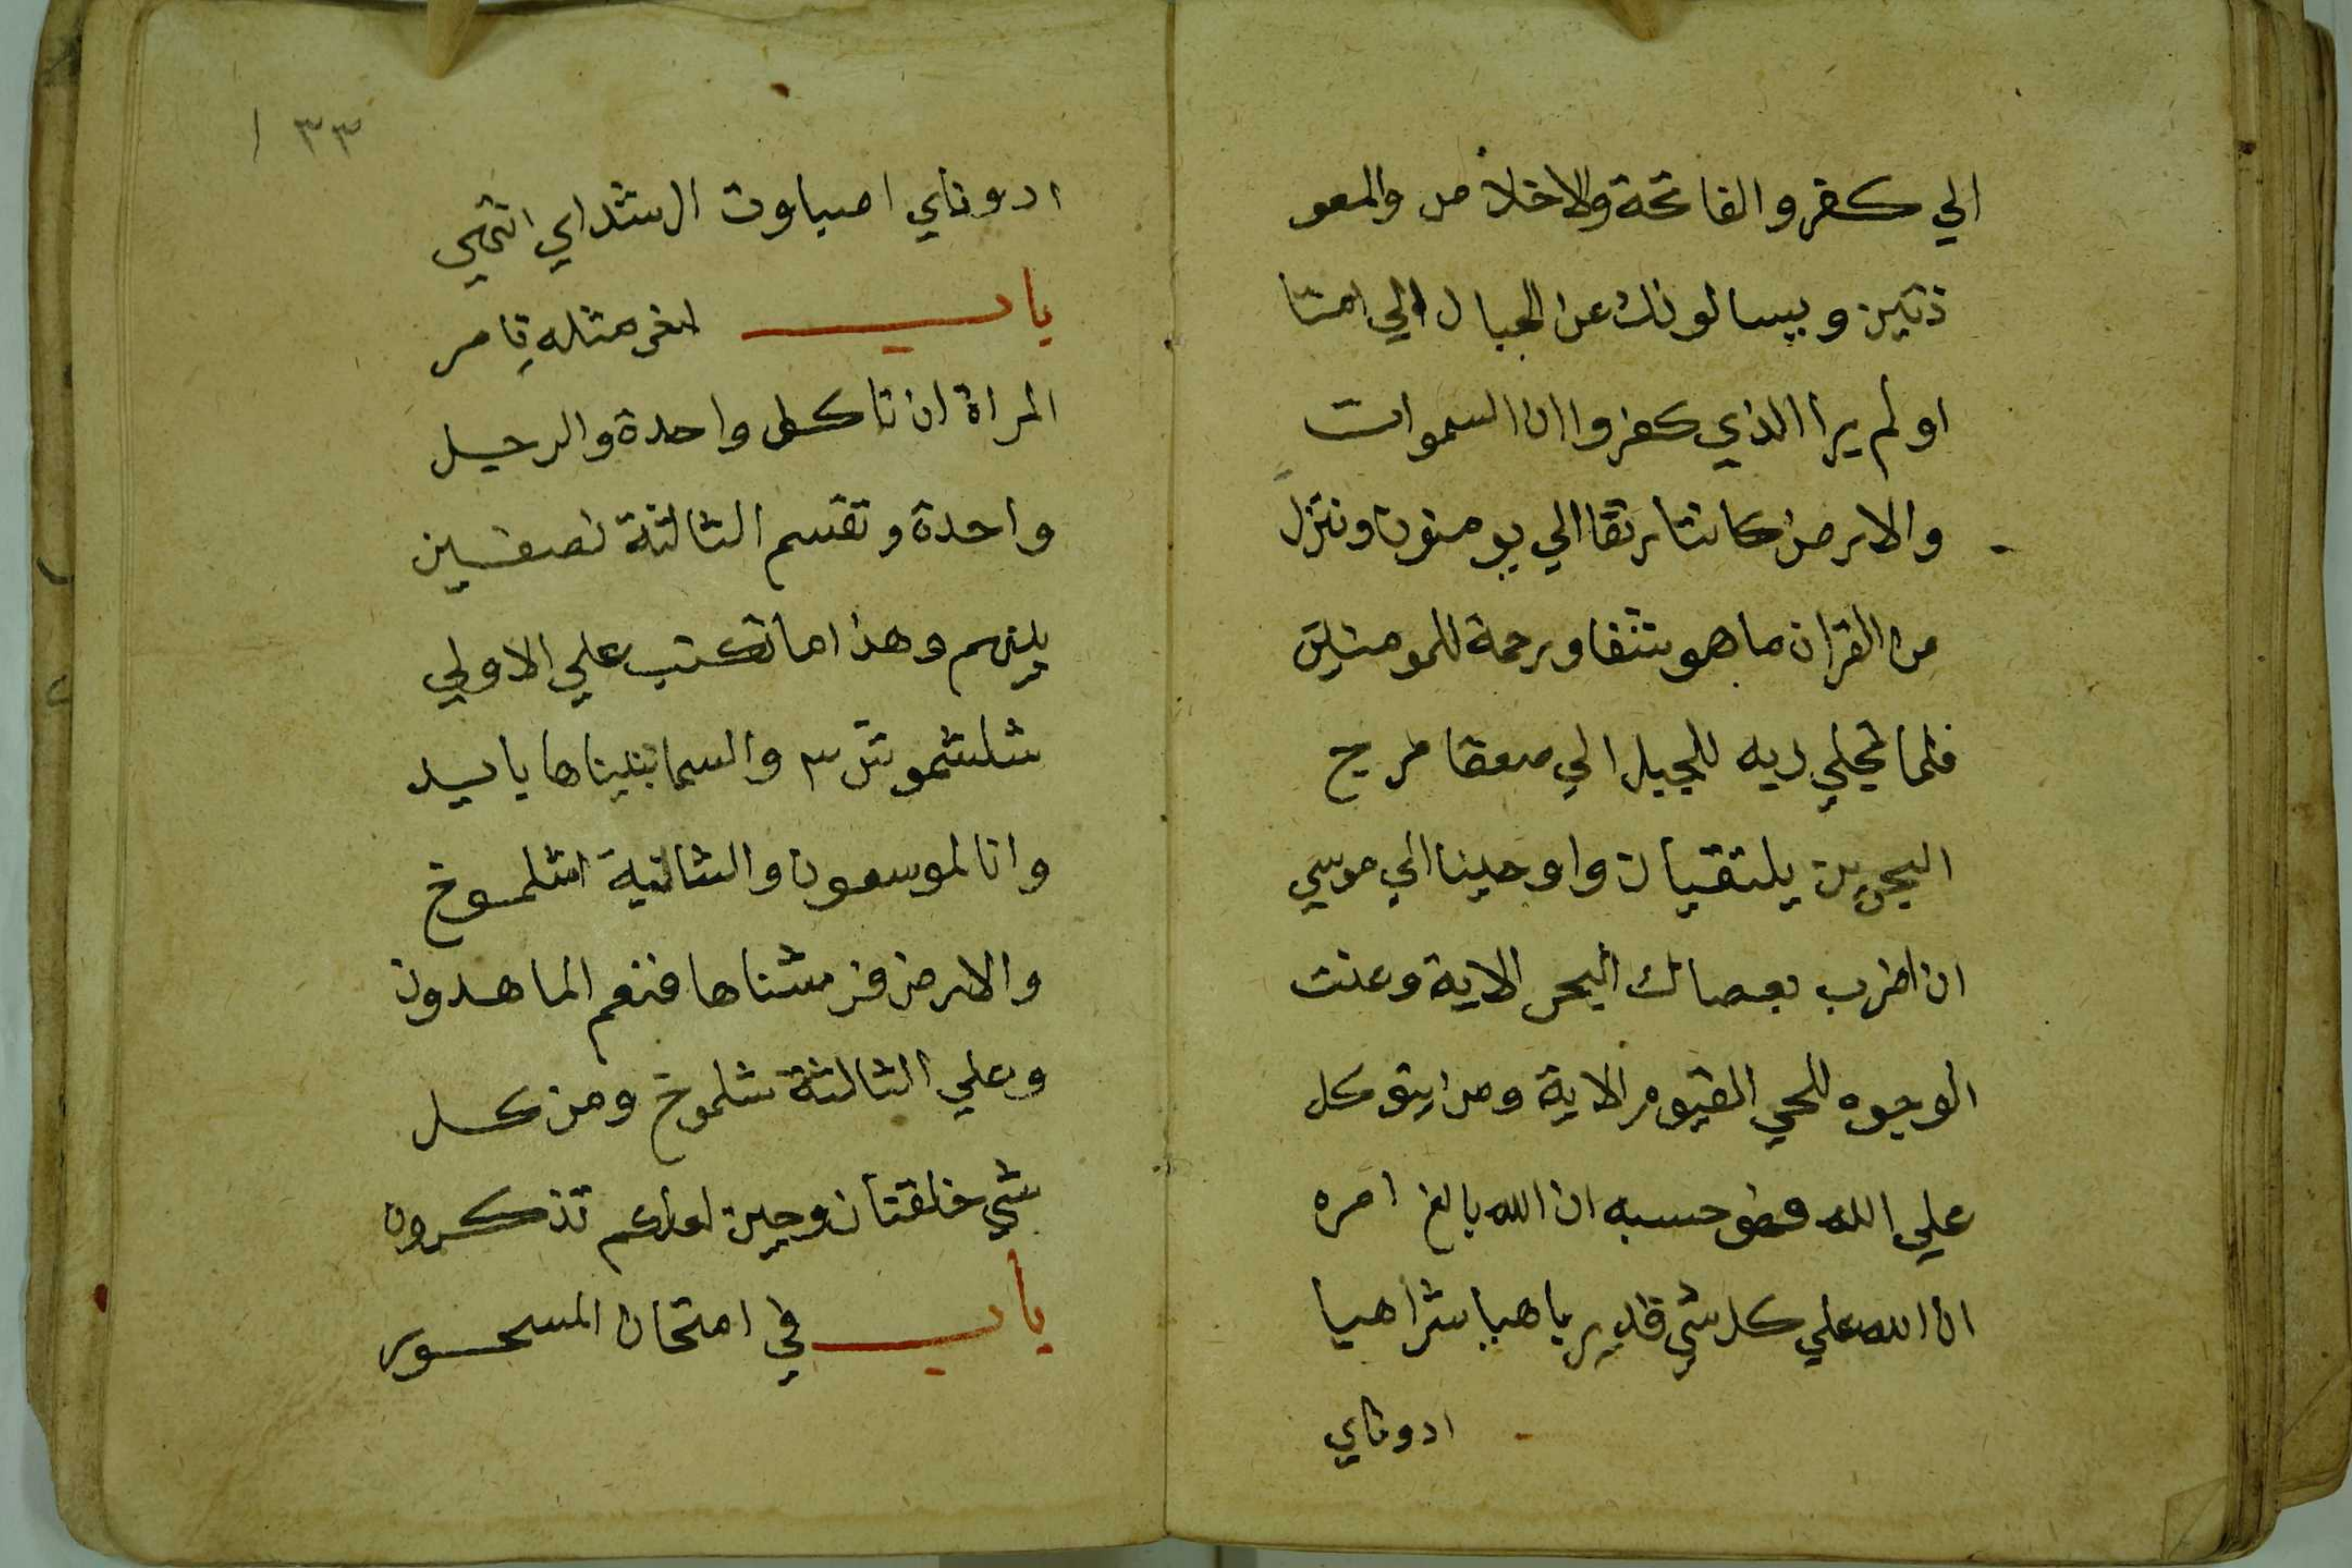 الي كفر والفاتحة والاخلاص والمعو
ذتين ويسالونك عن الجبال الي امتا
اولم يرا الذي كفروا ان السموات
والارض كانتا رتقا الي يومنون وننزل
من القران ما هو شفا ورحمة للمومنين
فلما تجلي ربه للجبل الي صعقا مرج
البحرين يلتقيان واوحينا الي موسي
ان اضرب بعصاك البحر الاية وعنت
الوجوه للحي القيوم الاية ومن يتوكل
علي الله فهو حسبه ان الله بالغ امره
ان الله علي كل شي قدير ياهيا شراهيا
ادوناي
١٣٣
ادوناي اصباوت ال شداي انتهي
باب لغر مثله تامر
المراة ان تاكل واحدة والرجل
واحدة وتقسم الثالثة نصفين
بينهم وهذا ما تكتب علي الاولي
والسما بنيناها بايد
وانا لموسعون والثانية اشلموخ
والارض فرشناها فنعم الماهدون
وعلي الثالثة شلموخ ومن كل
شي خلقنا زوجين لعلكم تذكرون
باب في امتحان المسحور